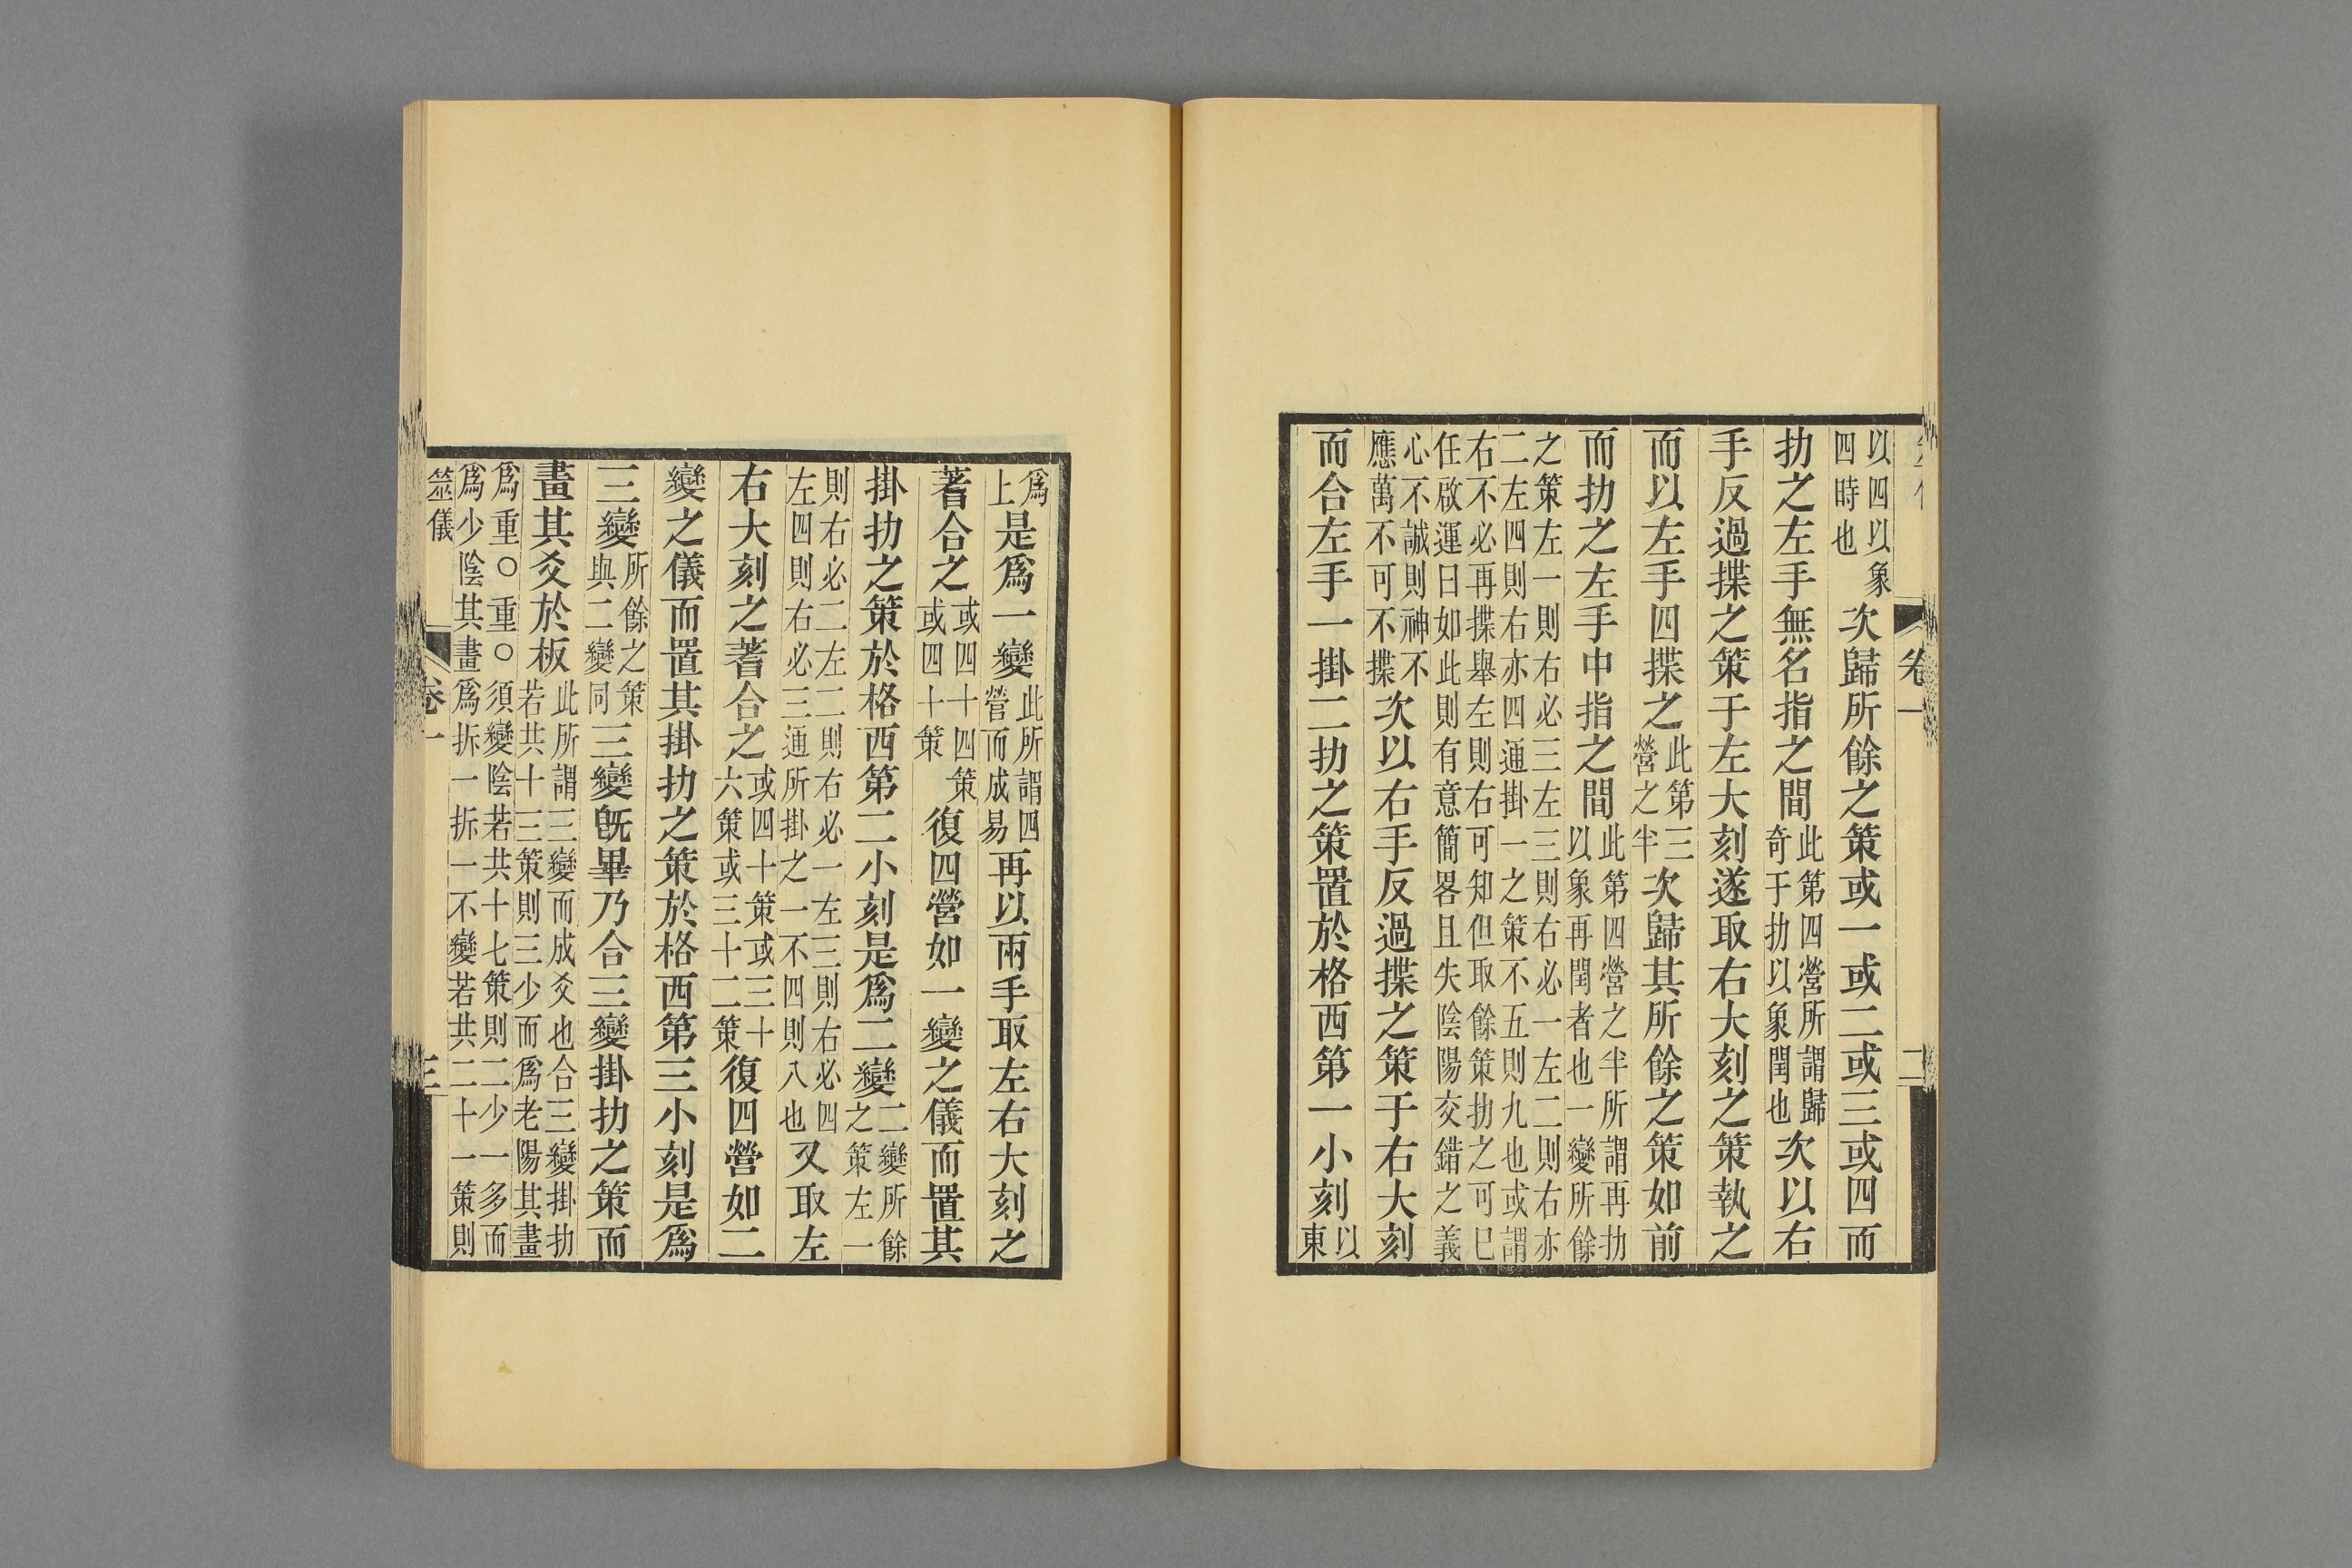 以四以象四時也次歸所餘之策或一或二或三或四而
扐之左手無名指之間此第四營之半所謂歸奇于扐以象閏也次以右
手反過揲之策于左大刻遂取右大刻之策執之
而以左手四揲之此第三營之半次歸其所餘之策如前
而扐之左手中指之間此第四營之半所謂再扐以象再閏者也一變所餘
之策左一則右必三左三則右必一左二則右亦二左四則右亦四通掛一之策不五則九也或謂
右不必再揲舉左則右可知但取餘策扐之可巳任啟運曰如此則有意簡畧且失陰陽交錯之義
心不誠則神不應萬不可不揲次以右手反過揲之策于右大刻
而合左手一掛二扐之策置於格西第一小刻以東
卷一
二
爲上是爲一變此所謂四營而成易再以兩手取左右大刻之
蓍合之或四十四策或四十策復四營如一變之儀而置其
掛扐之策於格西第二小刻是爲二變二變所餘之策左一
則右必二左二則右必一左三則右必四左四則右必三通所掛之一不四則八也又取左
右大刻之蓍合之或四十策或三十六策或三十二策復四營如二
變之儀而置其掛扐之策於格西第三小刻是爲
三變所餘之策與二變同三變旣畢乃合三變掛扐之策而
畫其爻於板此所謂三變而成爻也合三變掛扐若共十三策則三少而爲老陽其畫
爲重○重○須變陰若共十七策則二少一多而爲少陰其畫爲拆一拆一不變若共二十一策則
筮儀
卷一
三